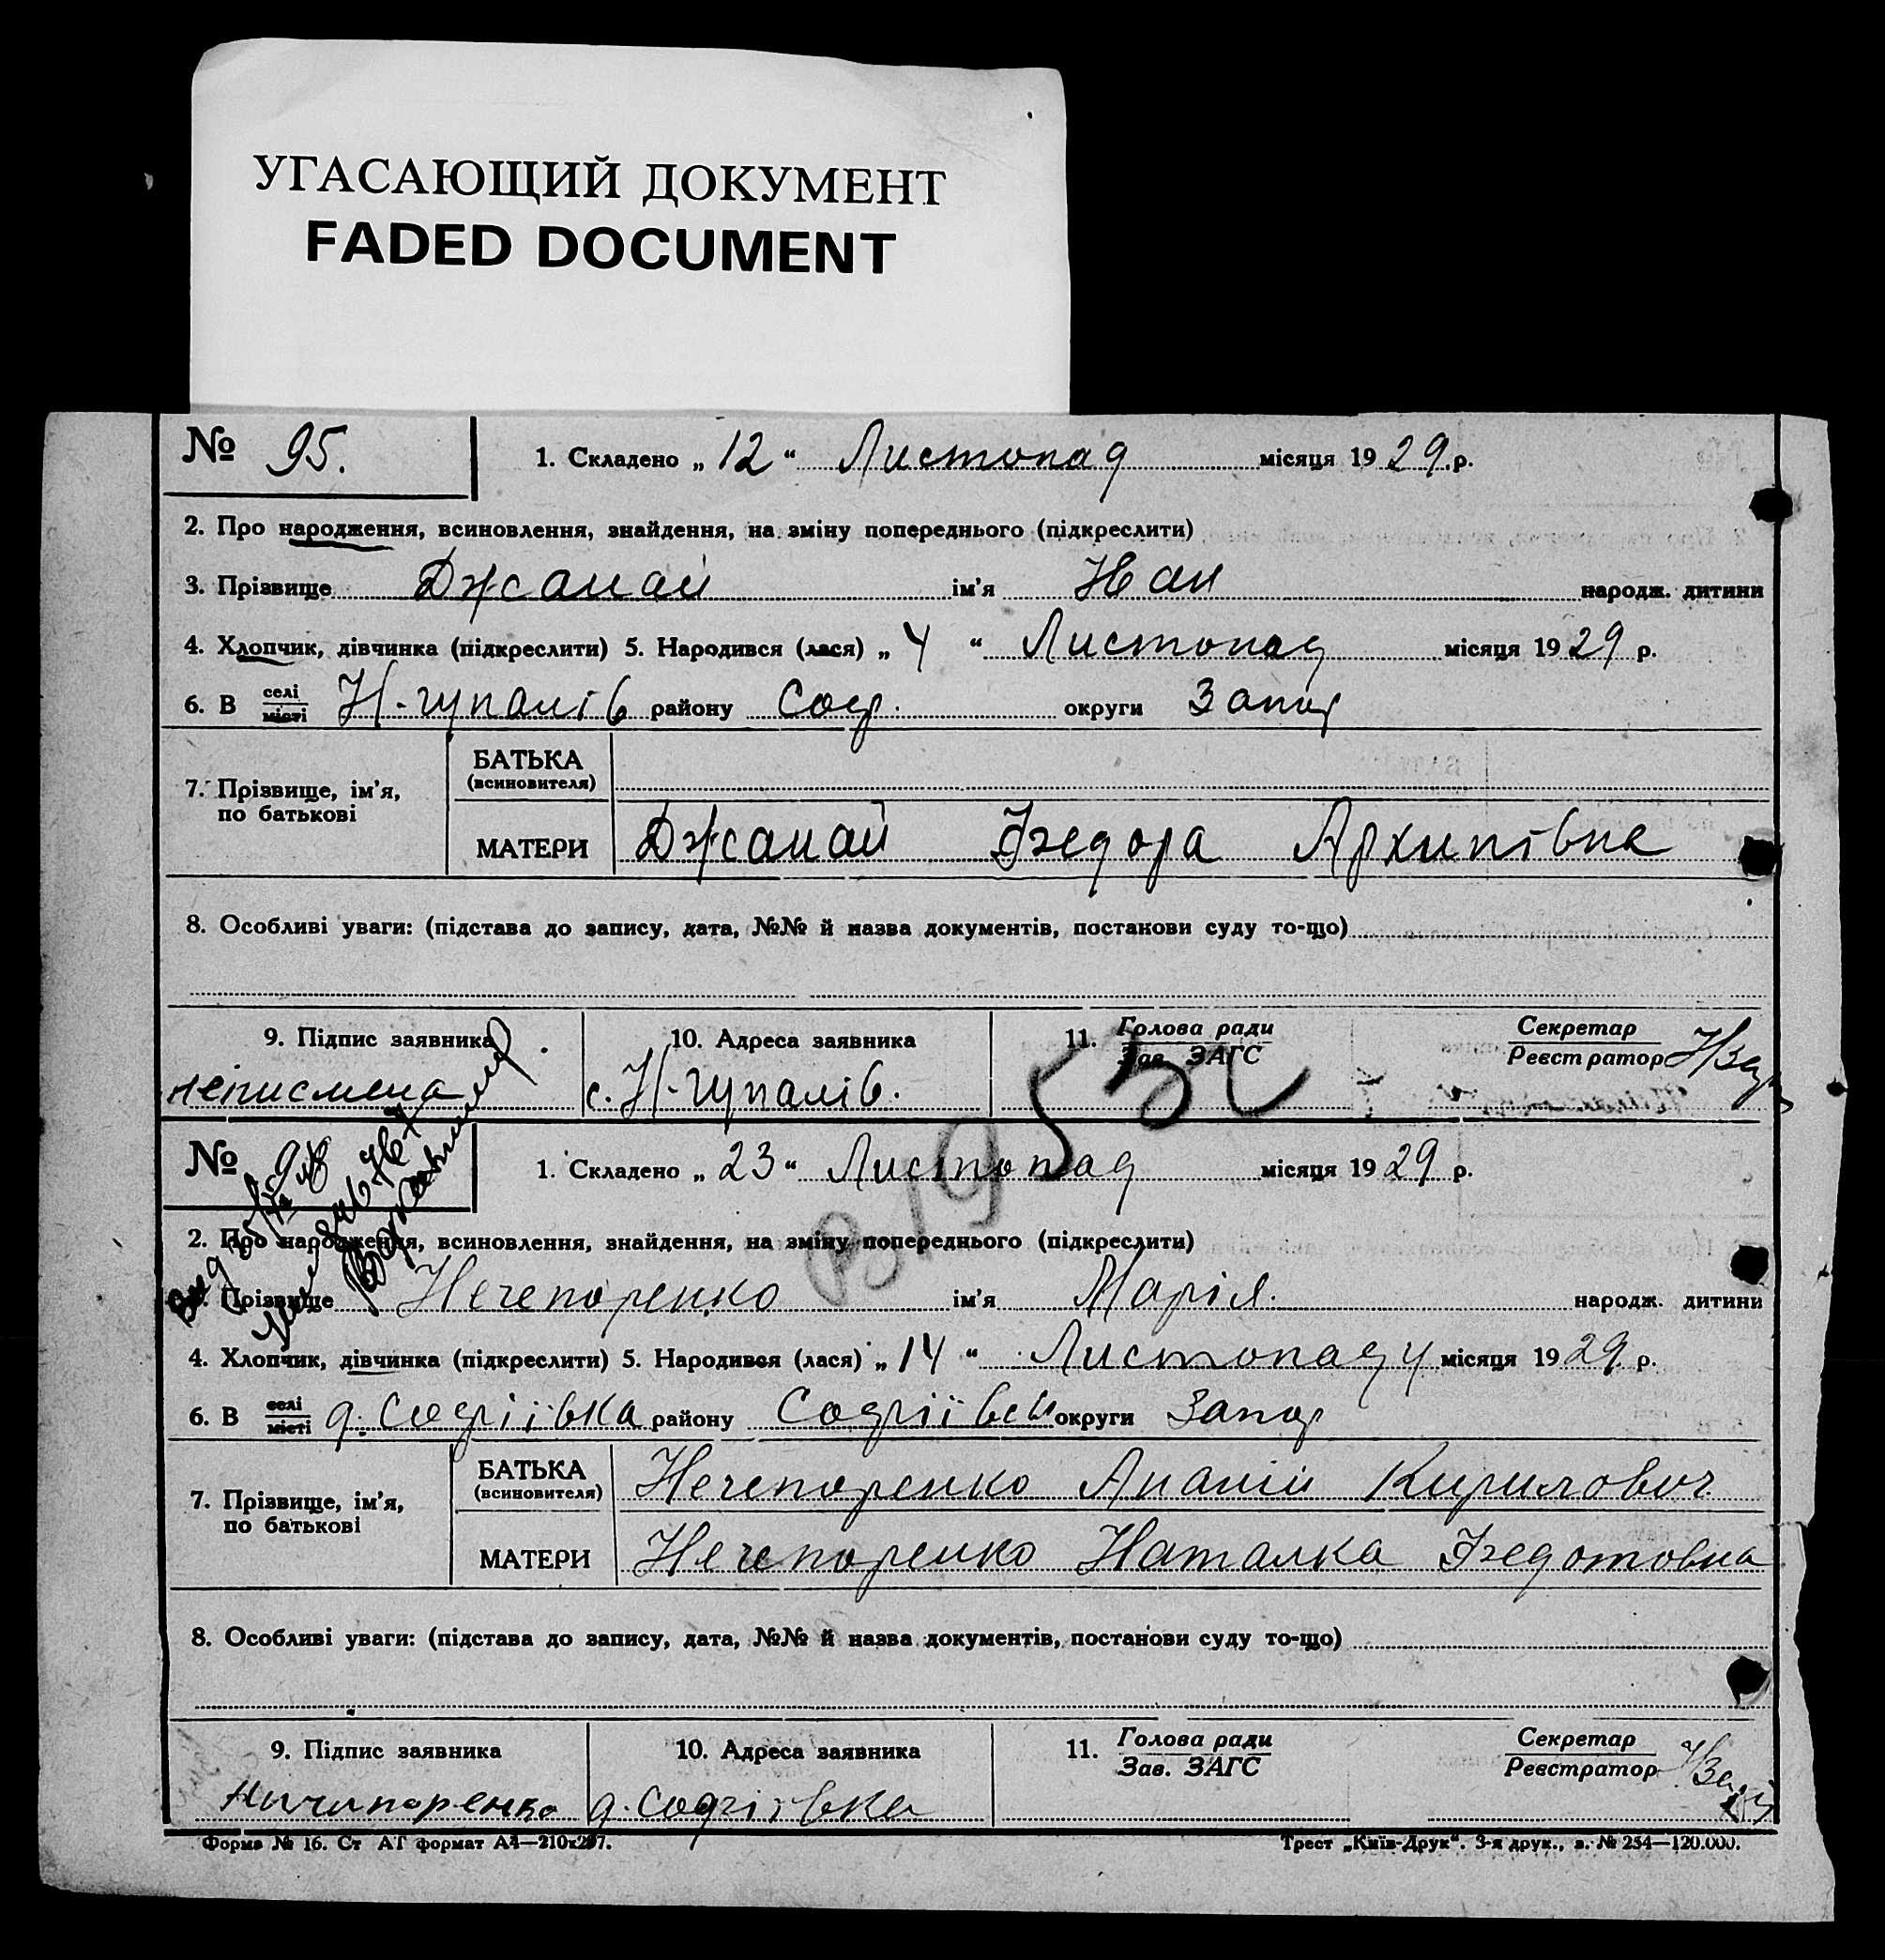 УГАСАЮЩИЙ ДОКУМЕНТ
FADED DOCUMENT
№ 95. 1. Складено „12“ Листопад місяця 1929 р.
2. Про народження, всиновлення, знайдення, на зміну попереднього (підкреслити)
3. Прізвище Джамай ім'я Нан народж. дитини
4. Хлопчик, дівчинка (підкреслити) 5. Народився (лася) „4“ Листопад місяця 1929 р.
6. В селі місті Н-гупалів району Соф. округи Запор
7. Прізвище, ім'я, по батькові
БАТЬКА (всиновителя)
МАТЕРИ Джамай Федора Архипівна
8. Особливі уваги: (підстава до запису, дата, №№ й назва документів, постанови суду то-що)
9. Підпис заявника 10. Адреса заявника 11. Голова ради Зав. ЗАГС Секретар Реєстратор
неписмена с. Н-гупалів.
№ 1. Складено „23“ Листопад місяця 1929 р.
2. Про народження, всиновлення, знайдення, на зміну попереднього (підкреслити)
3. Прізвище Нечепоренко ім'я Марія. народж. дитини
4. Хлопчик, дівчинка (підкреслити) 5. Народився (лася) „14“ Листопаду місяця 1929 р.
6. В селі місті д. Софіївка району Софіївськ округи Запор
7. Прізвище, ім'я, по батькові
БАТЬКА (всиновителя) Нечепоренко Ананій Кирилович
МАТЕРИ Нечепоренко Наталка Федотовна
8. Особливі уваги: (підстава до запису, дата, №№ й назва документів, постанови суду то-що)
9. Підпис заявника 10. Адреса заявника 11. Голова ради Зав. ЗАГС Секретар Реєстратор
Ничипоренко д. Софіївка
Форма № 16. Ст АТ формат А4—210х297. Трест „Київ-Друк“. 3-я друк., з. № 254—120.000.